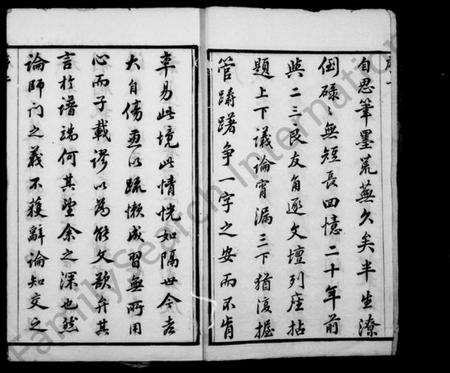 自思筆墨荒蕪久矣半生潦
倒碌〻無短長回憶二十年前
與二三良友角逐文壇列座拈
題上下議論宵漏三下猶復握
管躊躇爭一字之安而不肯
率易此境此情恍如隔世今老
大自傷更以疏懶成習無所用
心而子載謬以為能文歟弁其
言於譜端何其望余之深也然
論師門之義不獲辭論知交之
FamilySearch International